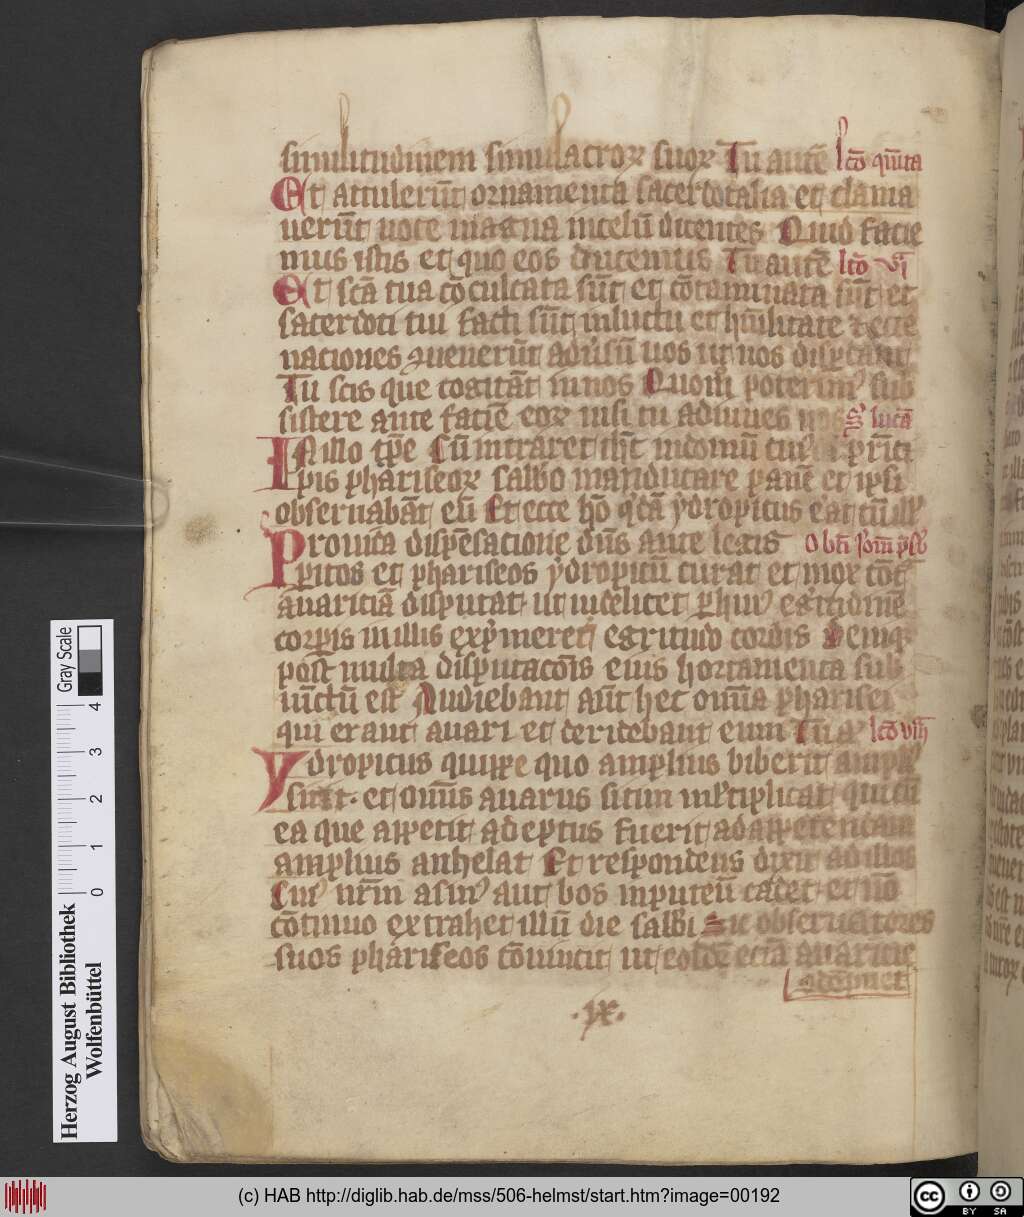 similitudinem simulacroꝝ suoꝝ Tu autē lcō quīta
Et attulerūt ornamenta sacerdotalia et clama
uerūt uoce magna incelū dicentes Quid facie
mus istis et quo eos ducemus Tu autē lcō vi
Et scā tua cōculcata sūt et cōtaminata sūt et
sacerdoti tui facti sūt inluctu et hūilitate et ecce
naciones ꝯuenerūt adūsū nos ut nos disꝑdant
Tu scis que cogitāt in nos Quom̄ poterimꝰ sub
sistere ante faciē eoꝝ nisi tu adiuues nos S lucā
IN illo tꝑe Cū intraret ihc̄ indomū cuiꝰdā prīci
pis phariseoꝝ salbo manducare panē et ipsi
obseruabāt eū Et ecce hō qdā ydropicus erat
Prouida dispēsacione dn̄s ante legis
ꝑitos et phariseos ydropicū curat et mox cōt
auariciā disputat ut uidelicet ꝑ huiꝰ egritudinē
corꝑis in illis exp̄meret egritudo cordis Deniqꝫ
post multa disputacōis eius hortamenta sub
iūctū est Audiebant aūt hec omīa pharisei
qui erant auari et deridebant eum Tu a lcō viii
Ydropicus quippe quo amplius biberit ampliꝰ
sitit. et omīs auarus sitim ml̄tiplicat qui cū
ea que appetit adeptus fuerit ad appetendam
amplius anhelat Et respondens dixit ad illos
Cuiꝰ ur̄m asinꝰ aut bos inputeū cadet et nō
cōtinuo extrahet illū die salbi Sic obseruatores
suos phariseos cōuincit ut eosdē eciā auaricie
.ix.
Herzog August Bibliothek
Wolfenbüttel
0 1 2 3 4
Gray Scale
(c) HAB http://diglib.hab.de/mss/506-helmst/start.htm?image=00192
cc BY SA